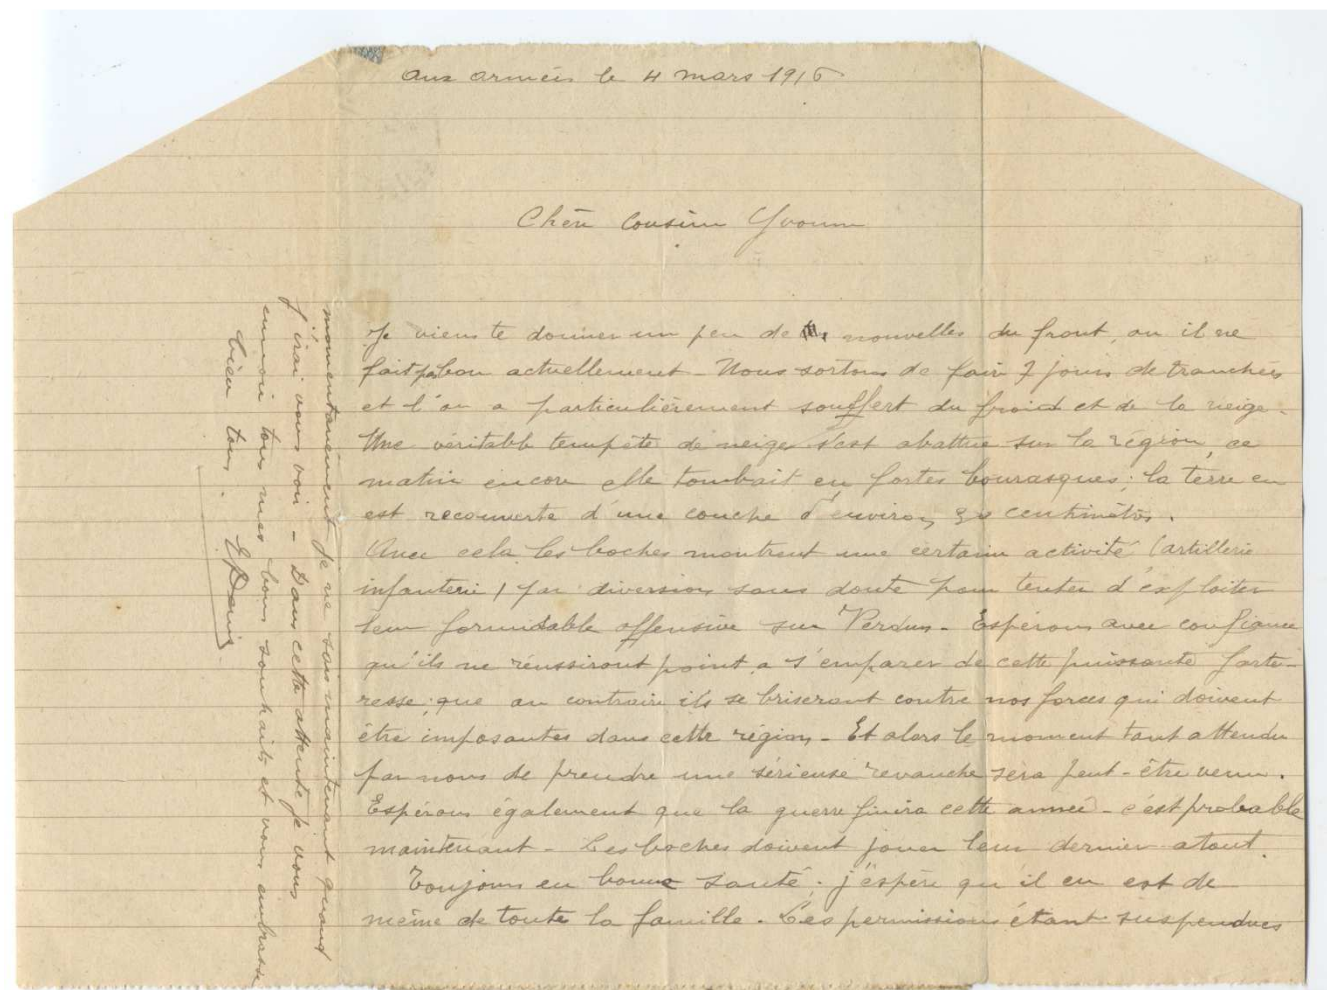 Aux armées le 4 mars 1916
Chère cousine Yvonne
Je viens te donner un peu de nouvelles du front, ou il ne
fait pas bon actuellement - Nous sortons de fair 7 jours de tranchées
et l'on a particulièrement souffert du froid et de la neige.
Une véritable tempête de neige s'est abattue sur la région, ce
matin encore elle tombait en fortes bourasques ; la terre en
est recouverte d'une couche d'environ 30 centimètres.
Avec cela les boches montrent une certaine activité (artillerie
infanterie) par diversion sans doute pour tenter d'exploiter
leur formidable offensive sur Verdun - Espérons avec confiance
qu'ils ne réussiront point a s'emparer de cette puissante forte-
resse ; que au contraire ils se briseront contre nos forces qui doivent
être imposantes dans cette région - Et alors le moment tant attendu
par nous de prendre une sérieuse revanche sera peut-être venu.
Espérons également que la guerre finira cette année - c'est probable
maintenant - Les boches doivent jouer leur dernier atout.
Toujours en bonne santé ; j'espère qu'il en est de
même de toute la famille. Les permissions étant suspendues
momentanément je ne sais maintenant quand
j'irai vous voir - Dans cette attente je vous
envoie tous mes bons souhaits et vous embrasse
bien tous.